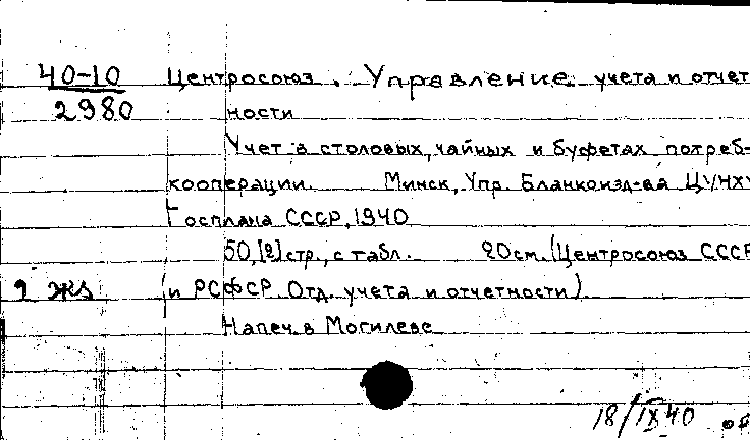 40-10 Центросоюз. Управление учета и отчет-
2980 ности
Учет в столовых, чайных и буфетах потреб-
кооперации. Минск, Упр. Бланкоизд-ва ЦУНХУ
Госплана СССР, 1940
50, [2] стр., с табл. 20см. (Центросоюз СССР
и РСФСР. Отд. учета и отчетности).
Напеч. в Могилеве
18/IX 40